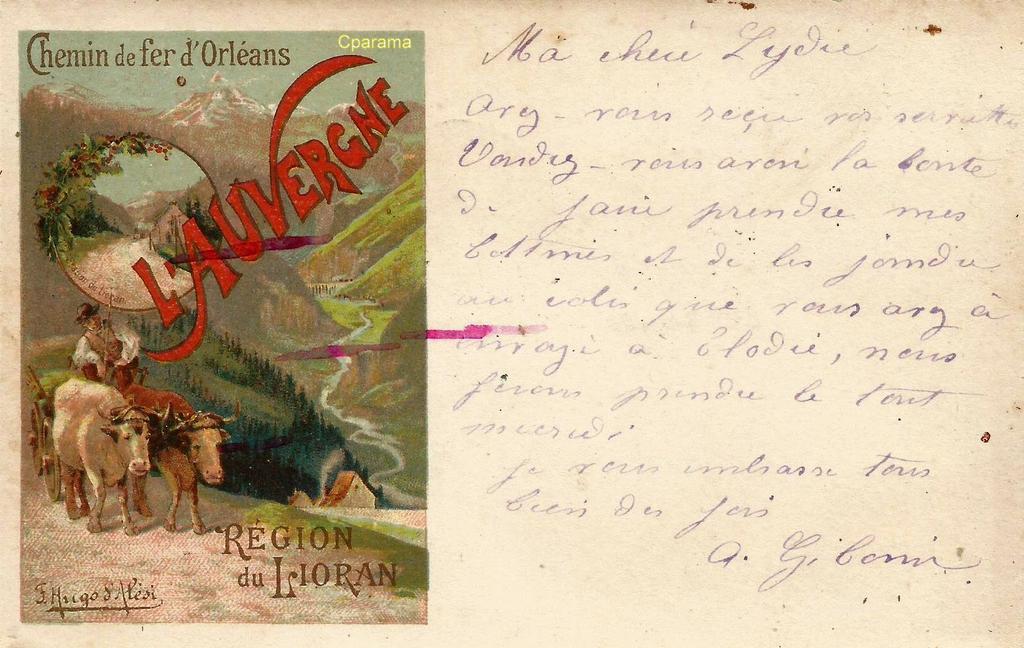 Chemin de fer d'Orléans
Cparama
L'AUVERGNE
RÉGION
du LIORAN
F. Hugo d'Alési
Ma chère Lydie
avez-vous reçu vos serviettes
Voudrez-vous avoir la bonté
de faire prendre mes
bottines et de les joindre
au colis que vous avez à
envoyé à Élodie, nous
ferons prendre le tout
mercredi
Je vous embrasse tous
bien des fois
A.